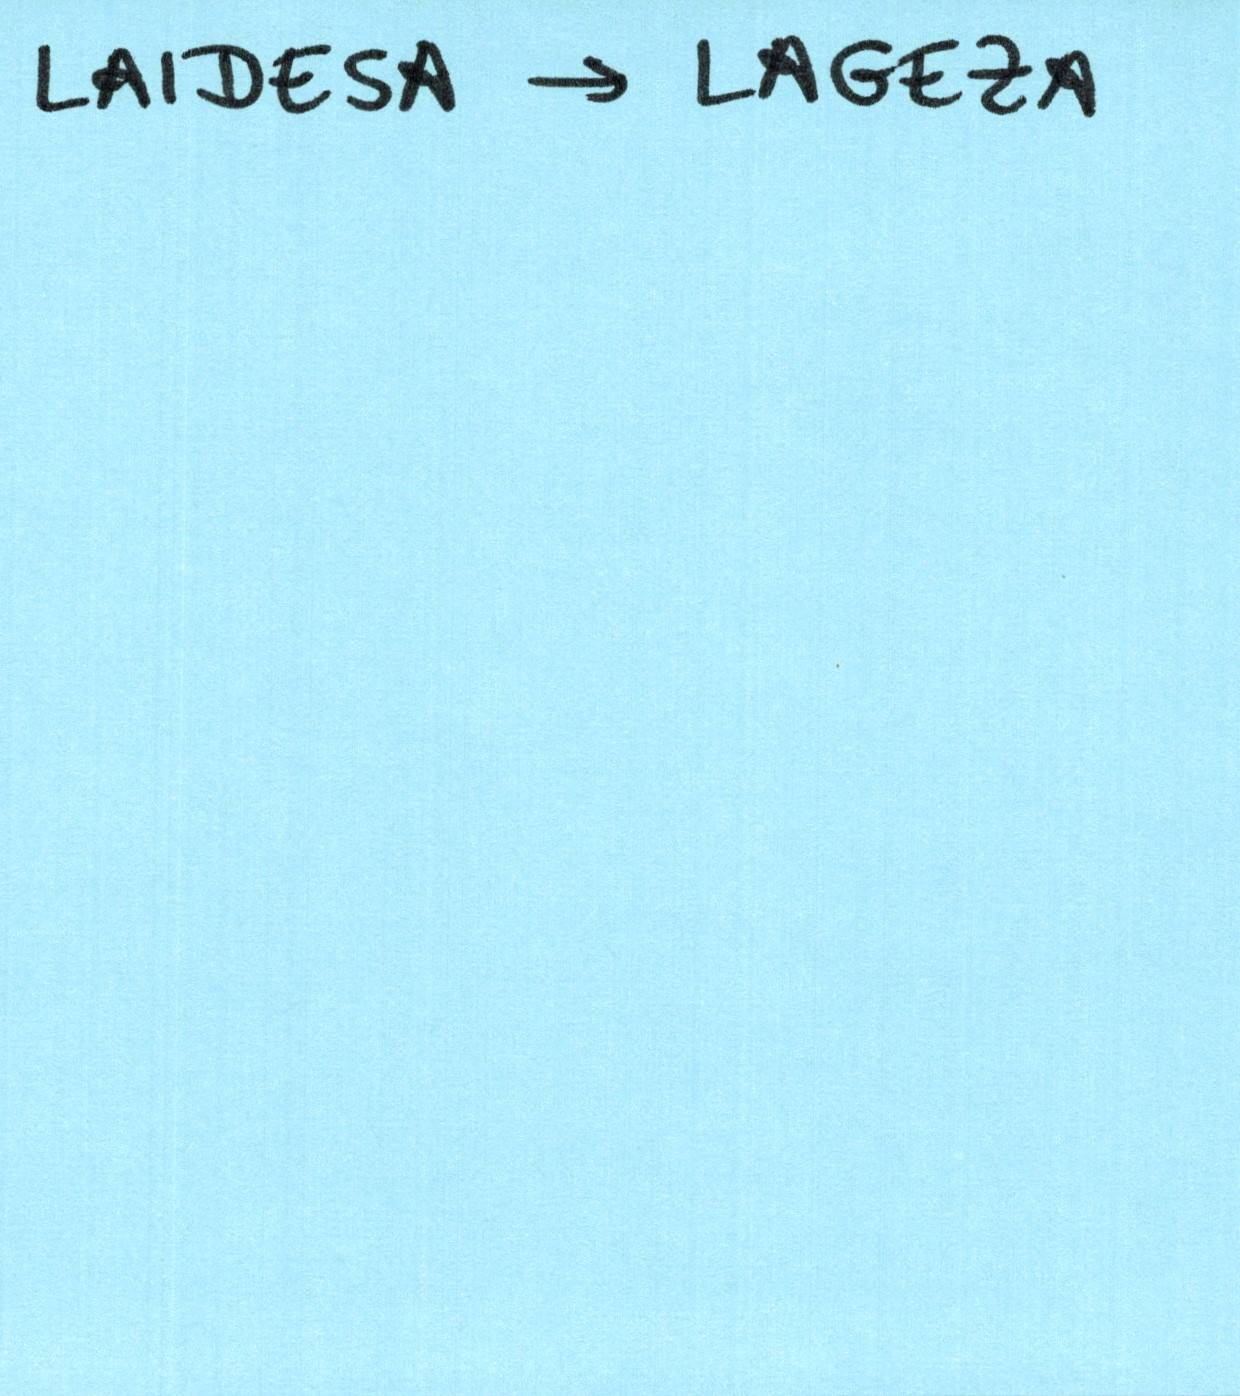 LAIDESA → LAGEZA